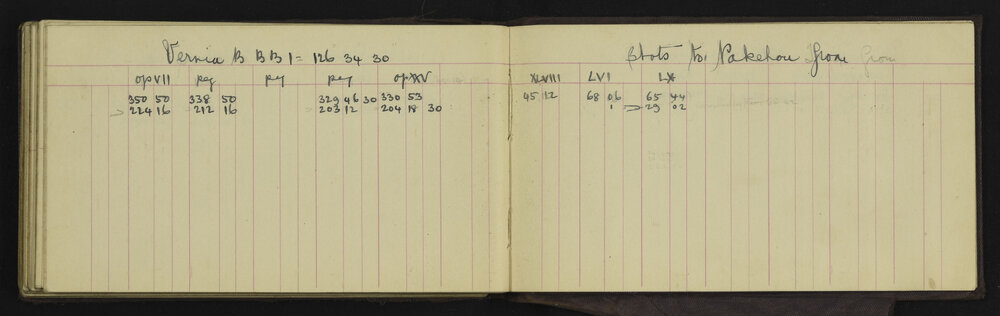 Vernia B B B 1 = 126 34 30
op VII peg peg peg op XV
350 50 338 50 329 46 30 330 53
224 16 212 16 203 12 204 18 30
Shots to Pakehou From
XLVIII LVI LX
45 12 68 06 65 44
1 29 02